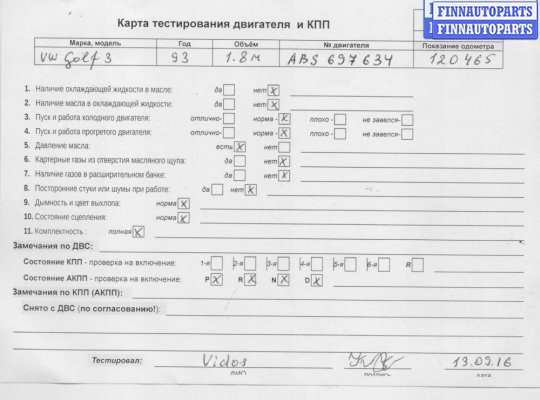 FINNAUTOPARTS
FINNAUTOPARTS
Карта тестирования двигателя и КПП
Марка, модель Год Объём № двигателя Показание одометра
VW Golf 3 93 1.8 м ABS 697634 120465
1. Наличие охлаждающей жидкости в масле: да нет x
2. Наличие масла в охлаждающей жидкости: да нет x
3. Пуск и работа холодного двигателя: отлично- норма - x плохо - не завелся-
4. Пуск и работа прогретого двигателя: отлично- норма - x плохо - не завелся-
5. Давление масла: есть x нет
6. Картерные газы из отверстия масляного щупа: да нет x
7. Наличие газов в расширительном бачке: да нет x
8. Посторонние стуки или шумы при работе: да нет x
9. Дымность и цвет выхлопа: норма x
10. Состояние сцепления: норма x
11. Комплектность : полная x
Замечания по ДВС:
Состояние КПП - проверка на включение: 1-я 2-я 3-я 4-я 5-я 6-я R
Состояние АКПП - проверка на включение: P x R x N x D x
Замечания по КПП (АКПП):
Снято с ДВС (по согласованию!):
Тестировал: Vidas 13.09.16
дата